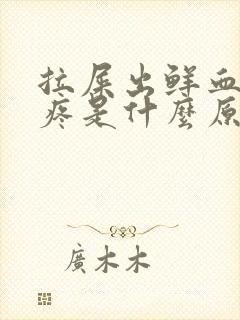 拉屎出鲜血
疼是什麼原
廣木木